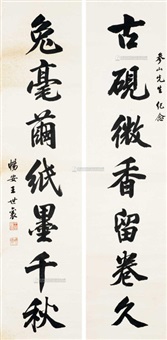 古硯微香留卷久
麥山先生 纪念
兔毫繭纸墨千秋
暢安王世襄